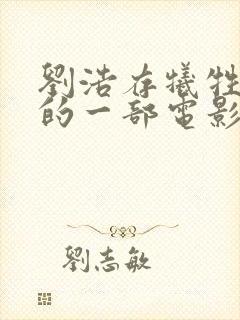 劉浩存犧牲
的一部電影
劉志敏